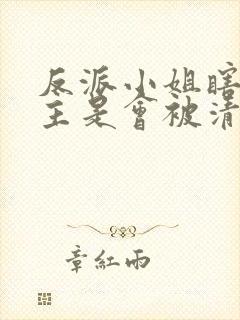 反派小姐瞎
主是會被清
章紅雨